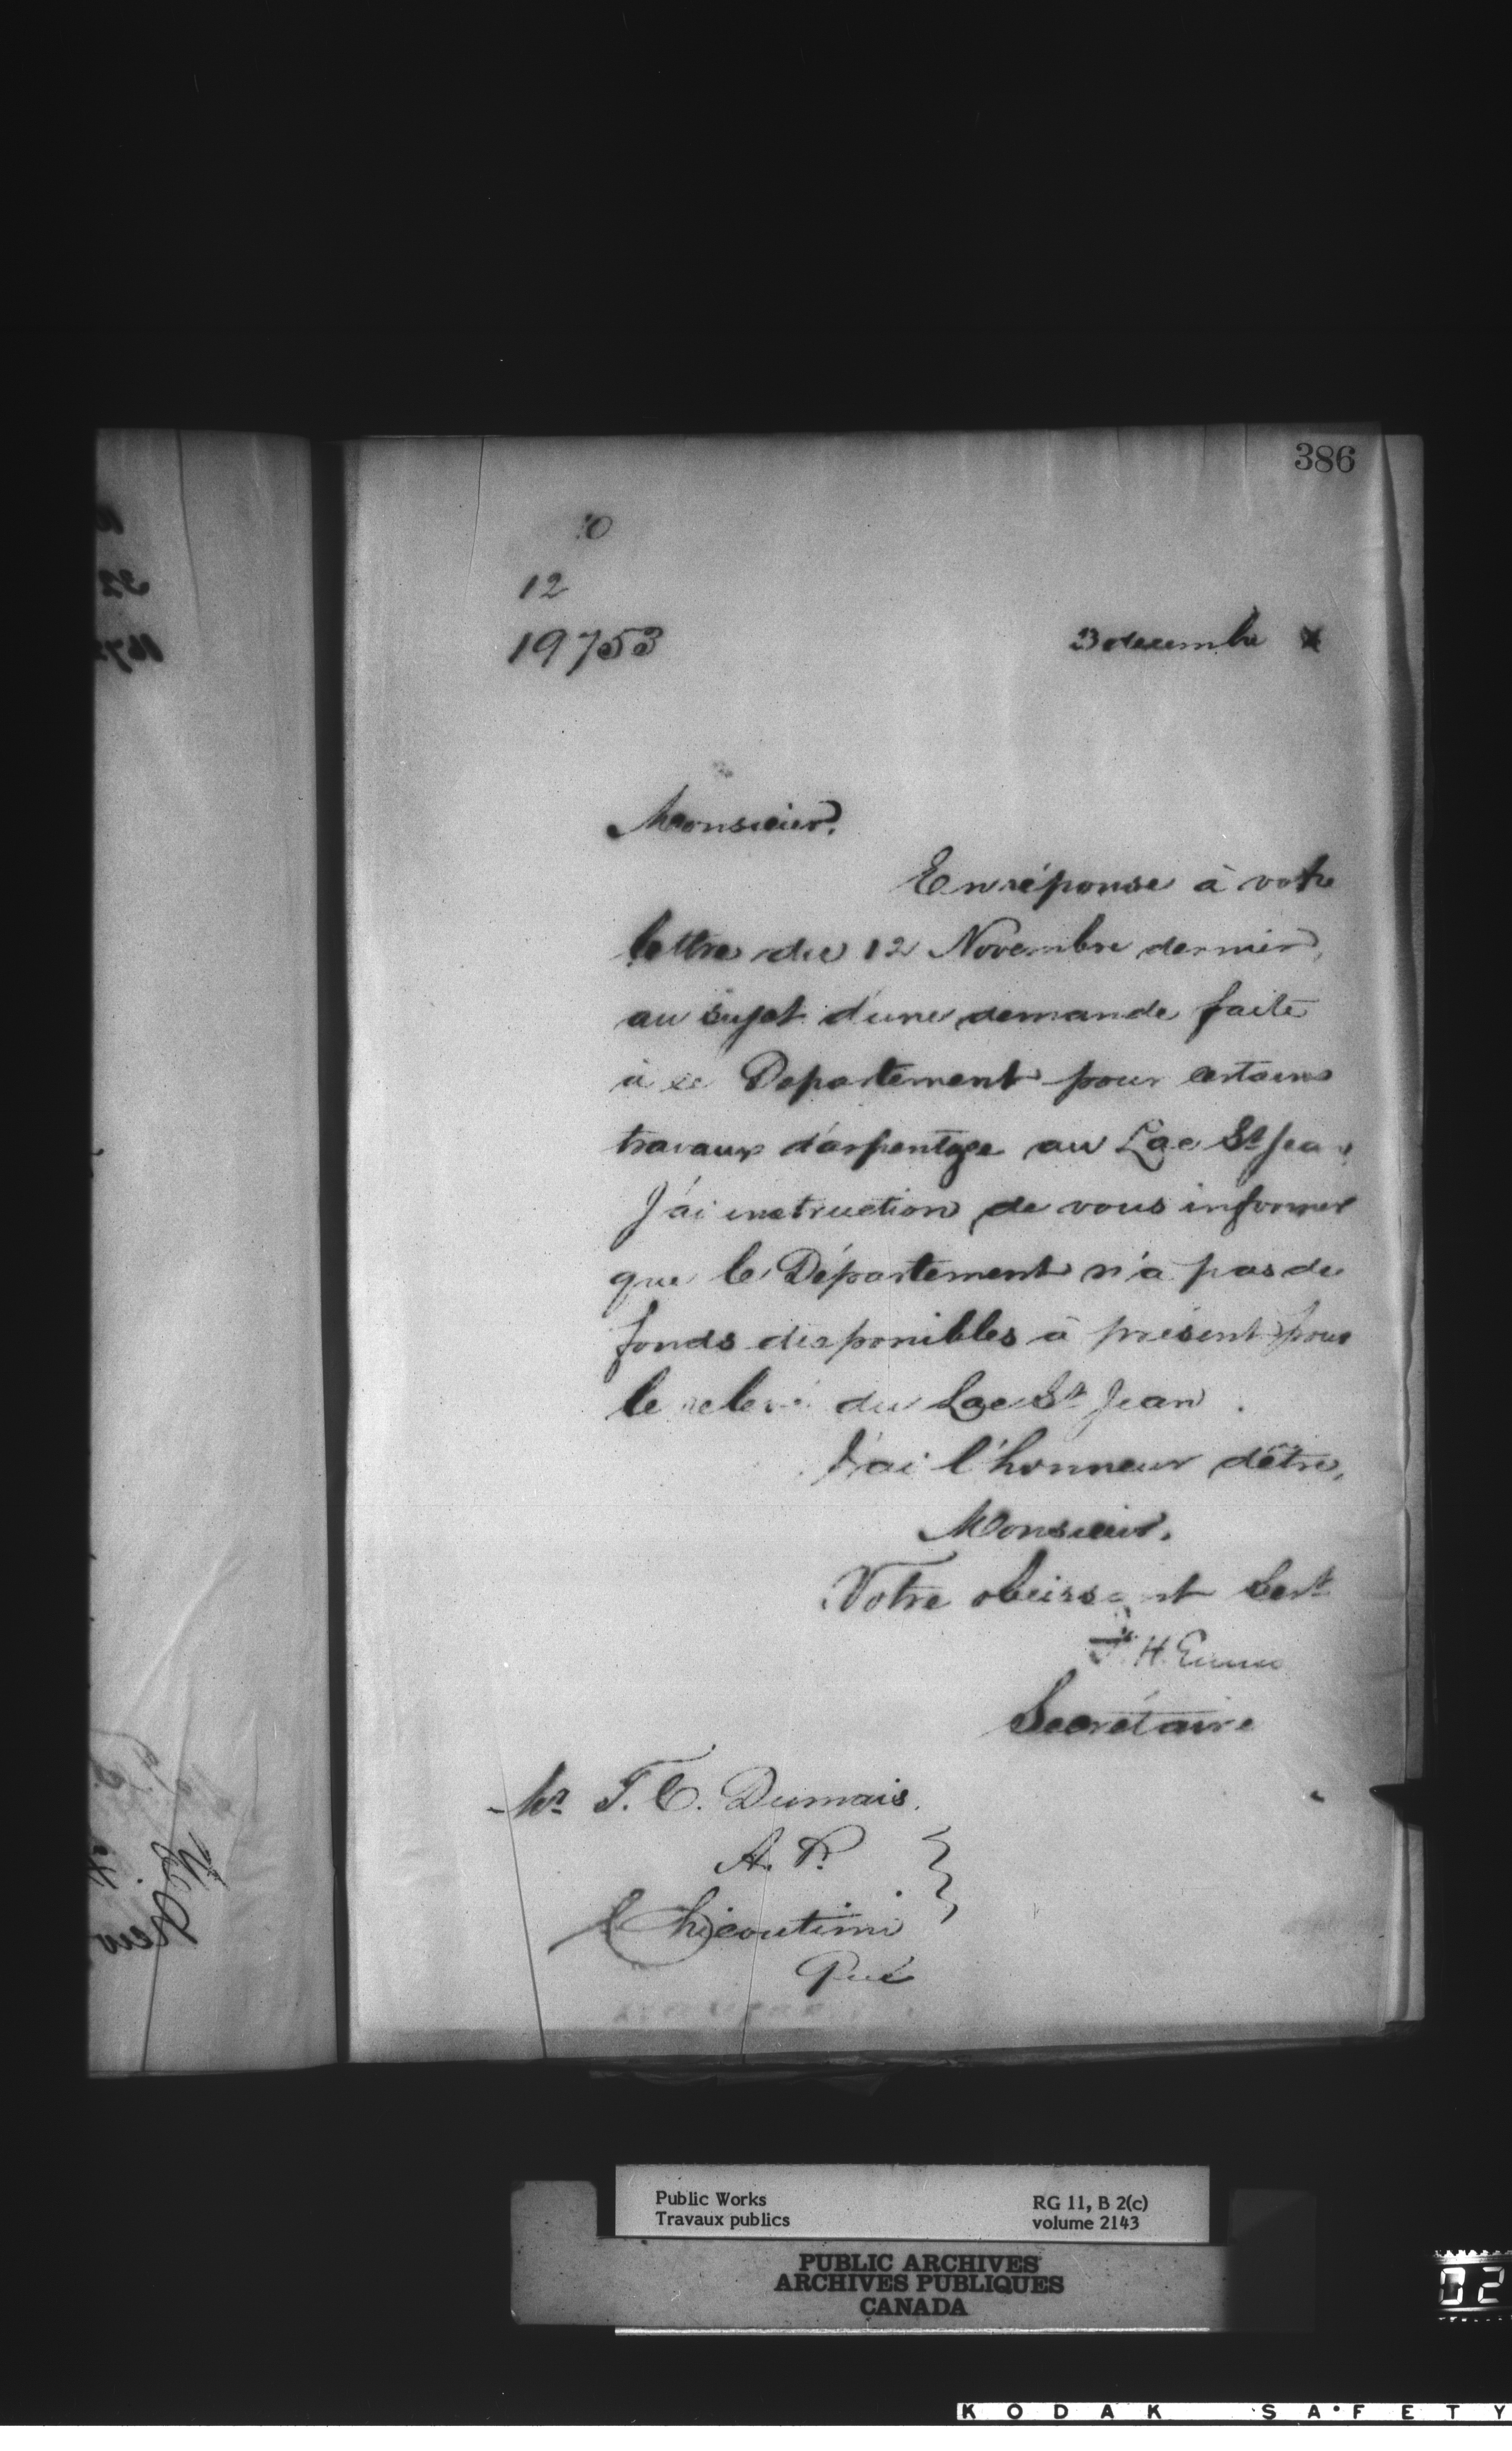 386
10
12
19753
3 decembre
Monsieur,
En réponse à votre
lettre du 12 Novembre dernier,
au sujet d'une demande faite
à ce Departement pour certains
travaux d'arpentage au Lac St Jean
J'ai instruction de vous informer
que le Département n'a pas de
fonds disponibles à présent pour
le relevé du Lac St Jean.
J'ai l'honneur d'être,
Monsieur,
Votre obeissant Sert
F. H. Ennis
Secrétaire
Mr T. C. Dumais.
A. P.
Chicoutimi
Qué
Public Works
Travaux publics
RG 11, B 2(c)
volume 2143
PUBLIC ARCHIVES
ARCHIVES PUBLIQUES
CANADA
02
KODAK SAFETY